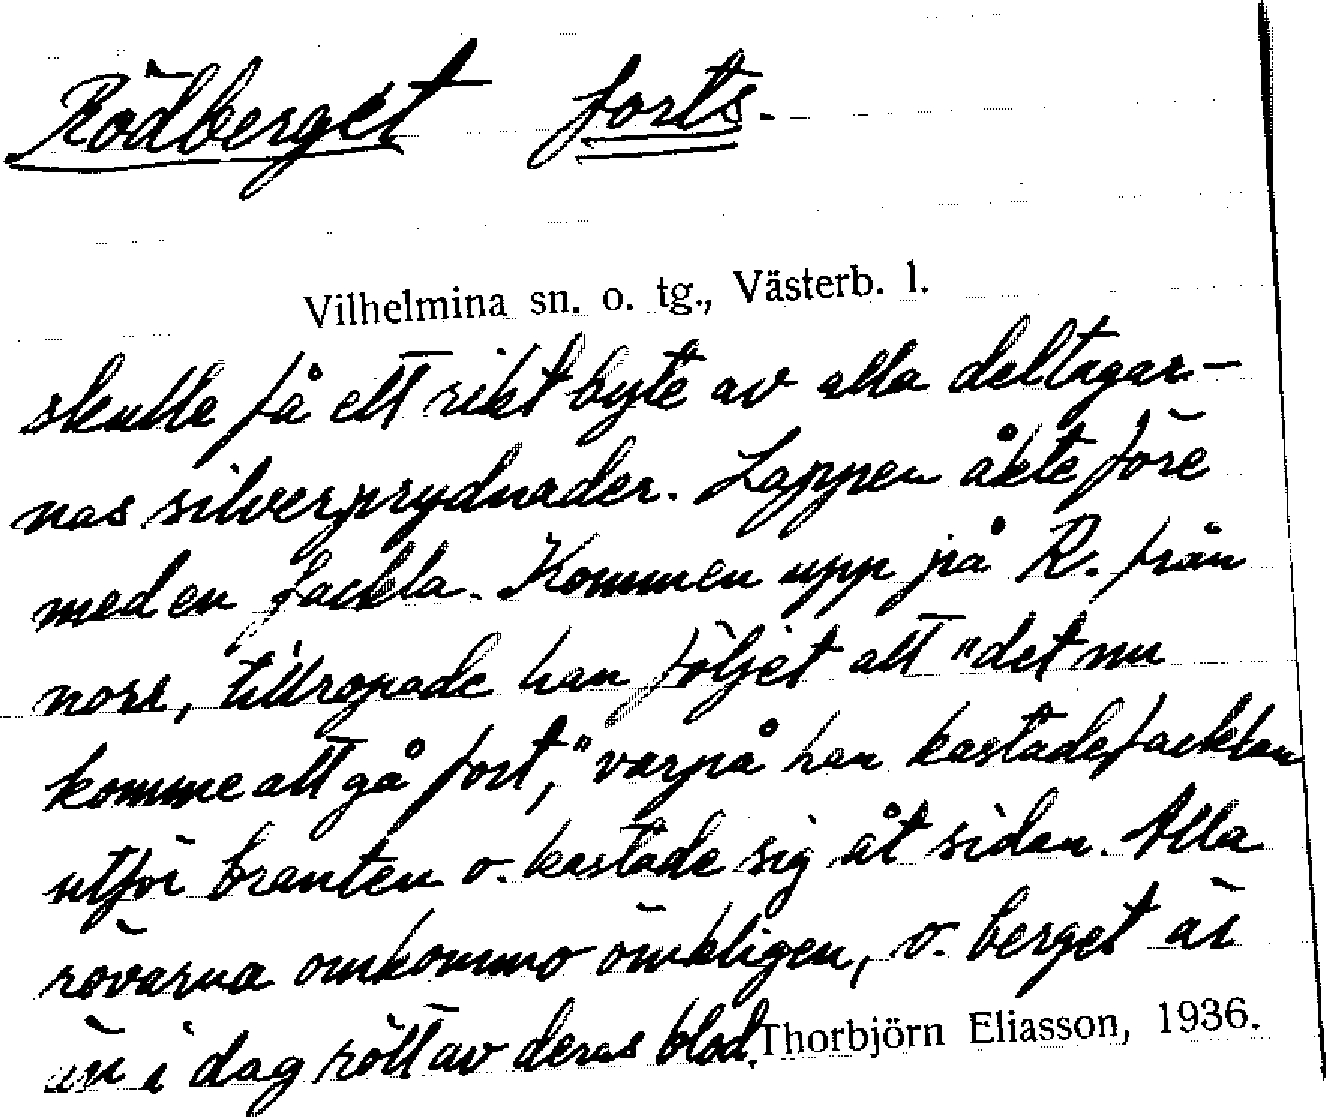 Rödberget forts.
Vilhelmina sn. o. tg., Västerb. l.
skulle få ett rikt byte av alla deltagar-
nas silverprydnader. Lappen åkte före
med en fackla. Kommen upp på R. från
norr, tillropade han följet att "det nu
komme att gå fort," varpå han kastade facklan
utför branten o. kastade sig åt sidan. Alla
rövarna omkommo ömkligen, o. berget är
än i dag rött av deras blod.
Thorbjörn Eliasson, 1936.